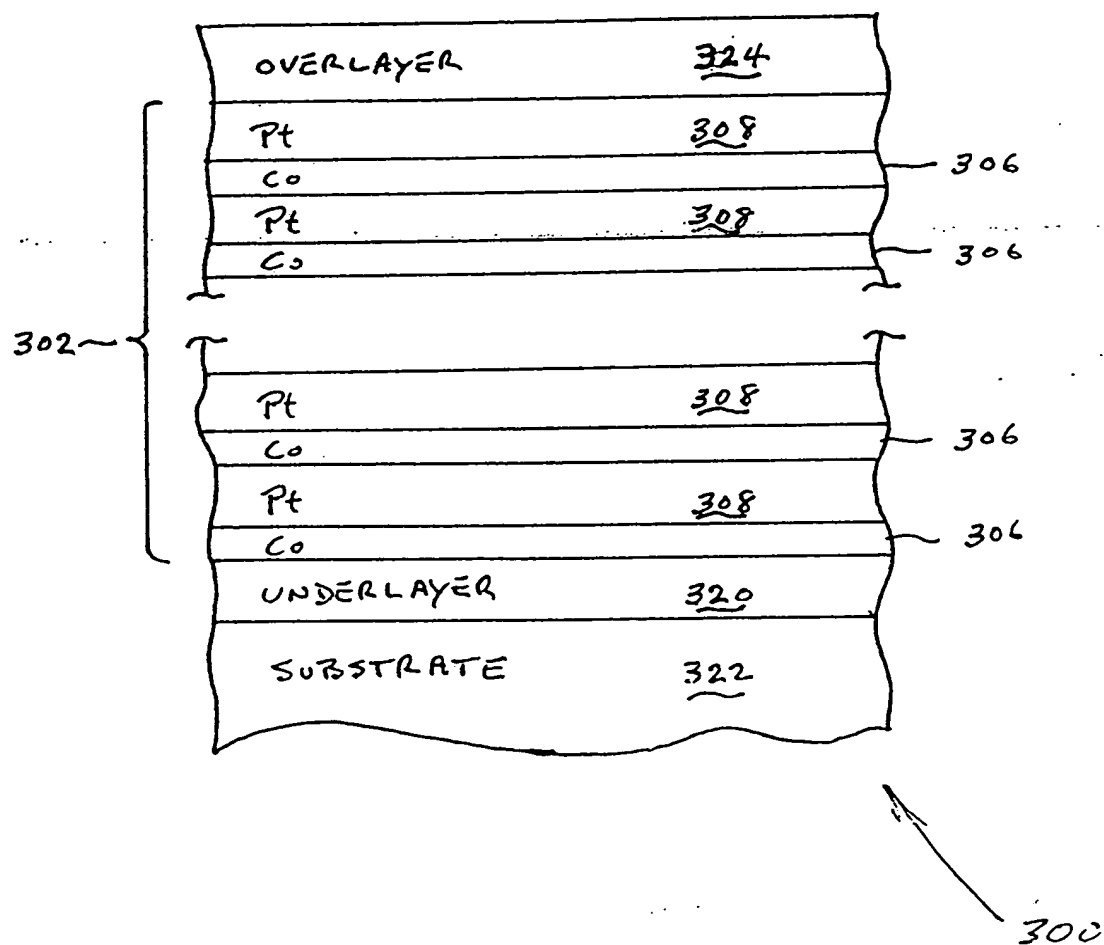 OVERLAYER 324
Pt 308
Co 306
Pt 308
Co 306
302
Pt 308
Co 306
Pt 308
Co 306
UNDERLAYER 320
SUBSTRATE 322
300